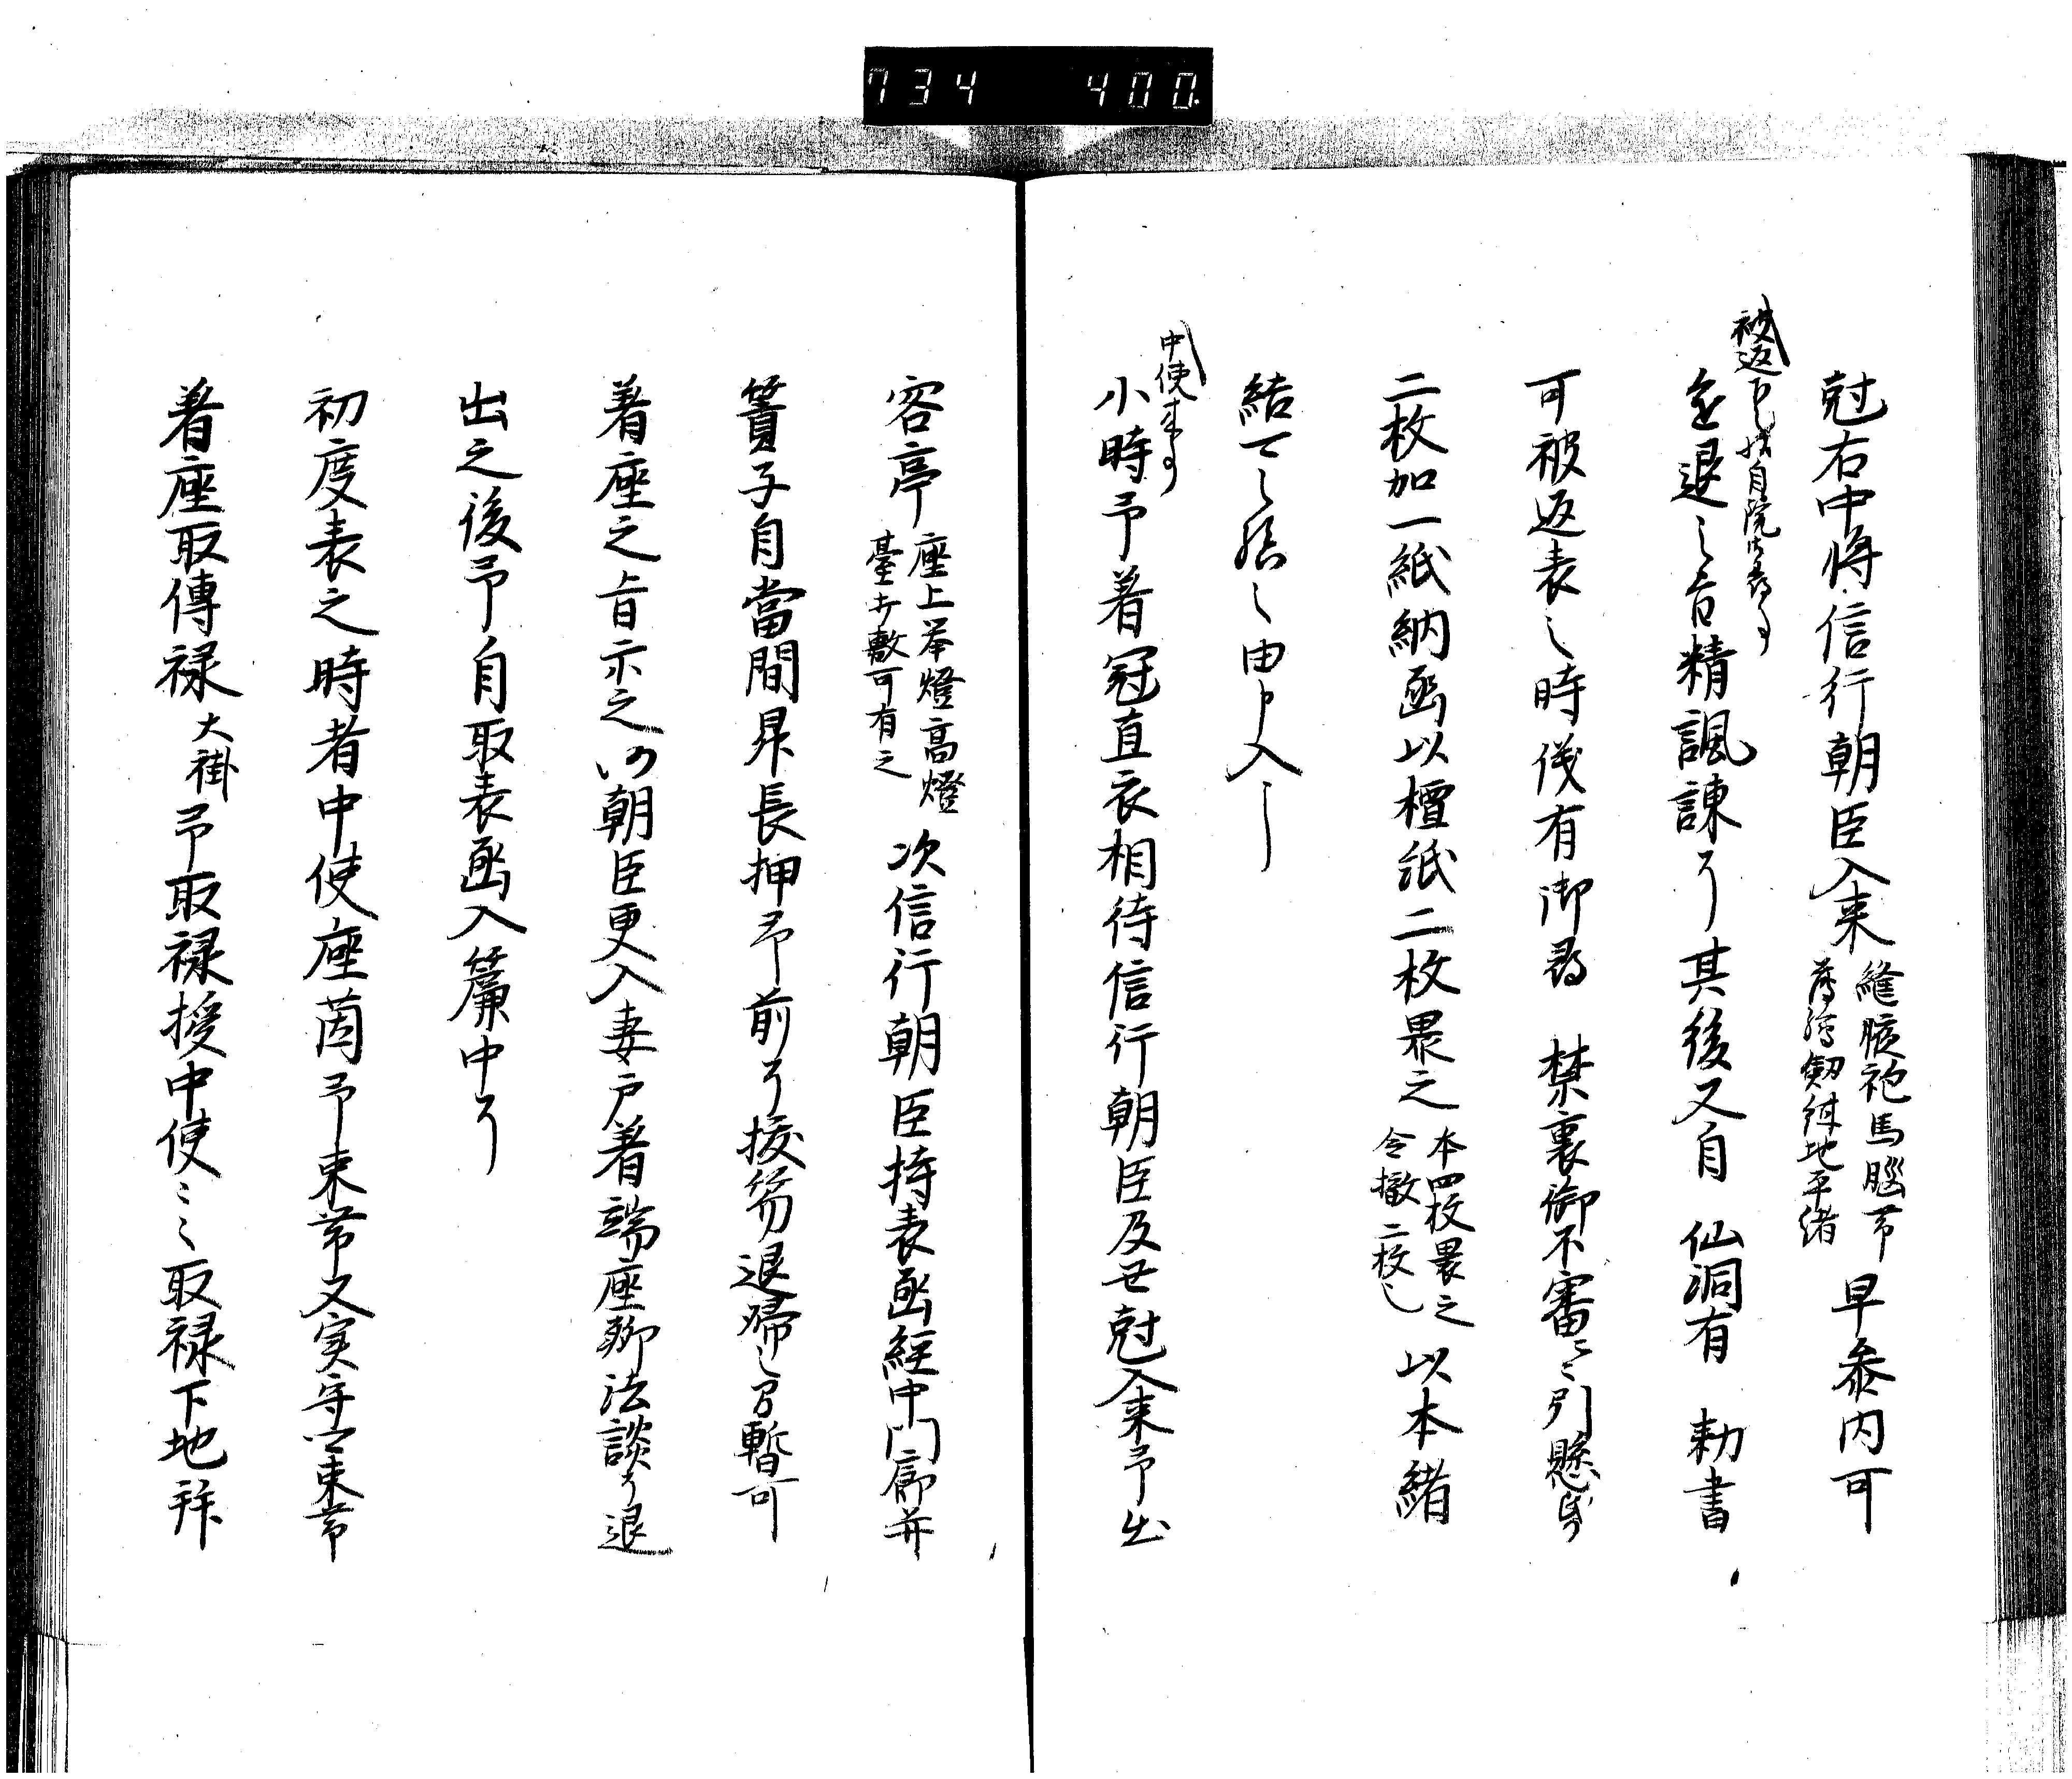 734 400
尅右中将信行朝臣入来 縫腋袍馬腦帯
蒔絵釼紺地平緒 早参内可
被返
自院
急退之旨精諷諫了其後又自 仙洞有 勅書
可被返表之時儀有御尋 禁裏御不審云々引懸
二枚加一紙納函以檀紙二枚褁之 本四枚褁之
令撤二枚也 以本緒
結
之由申入
中使来事
小時予着冠直衣相待信行朝臣及廿尅入来予出
客亭 座上挙燈高燈
臺 敷可有之 次信行朝臣持表函経中門廊并
簀子自當間昇長押予前了挍笏退帰之間暫可
着座之旨示之仍朝臣更入妻戸着端座聊法談了退
出之後予自取表函入簾中了
初度表之時者中使座茵予束帯又実守 束帯
着座取傳禄 大褂 予取禄授中使々々取禄下地拜